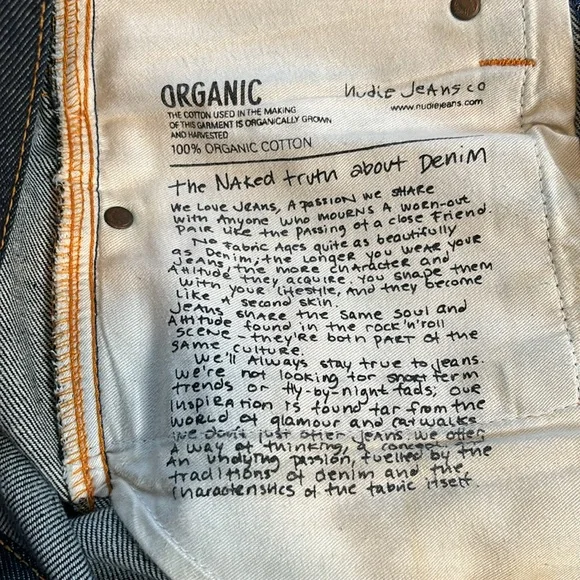 ORGANIC
nudie Jeans co
THE COTTON USED IN THE MAKING
OF THIS GARMENT IS ORGANICALLY GROWN
AND HARVESTED
www.nudiejeans.com
100% ORGANIC COTTON
the Naked truth about Denim
We Love Jeans, A passion we share
with Anyone who mourns A worn-out
pair like the passing of a close friend.
No fabric Ages quite as beautifully
as Denim; the longer you wear your
Jeans, the more character and
Attitude they acquire. You shape them
with your lifestyle, And they become
like A second skin.
Jeans share the same soul and
Attitude found in the rock'n'roll
scene - they're both part of the
same culture.
We'll Always stay true to jeans.
We're not looking for short term
trends or fly-by-night fads; our
inspiration is found far from the
world of glamour and catwalks
we don't just offer jeans. we offer
A way of thinking, a concept
An undying passion, fuelled by the
traditions of denim and the
characteristics of the fabric itself.